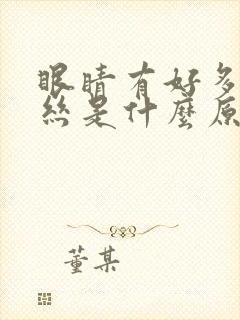 眼睛有好多
絲是什麼原
董某